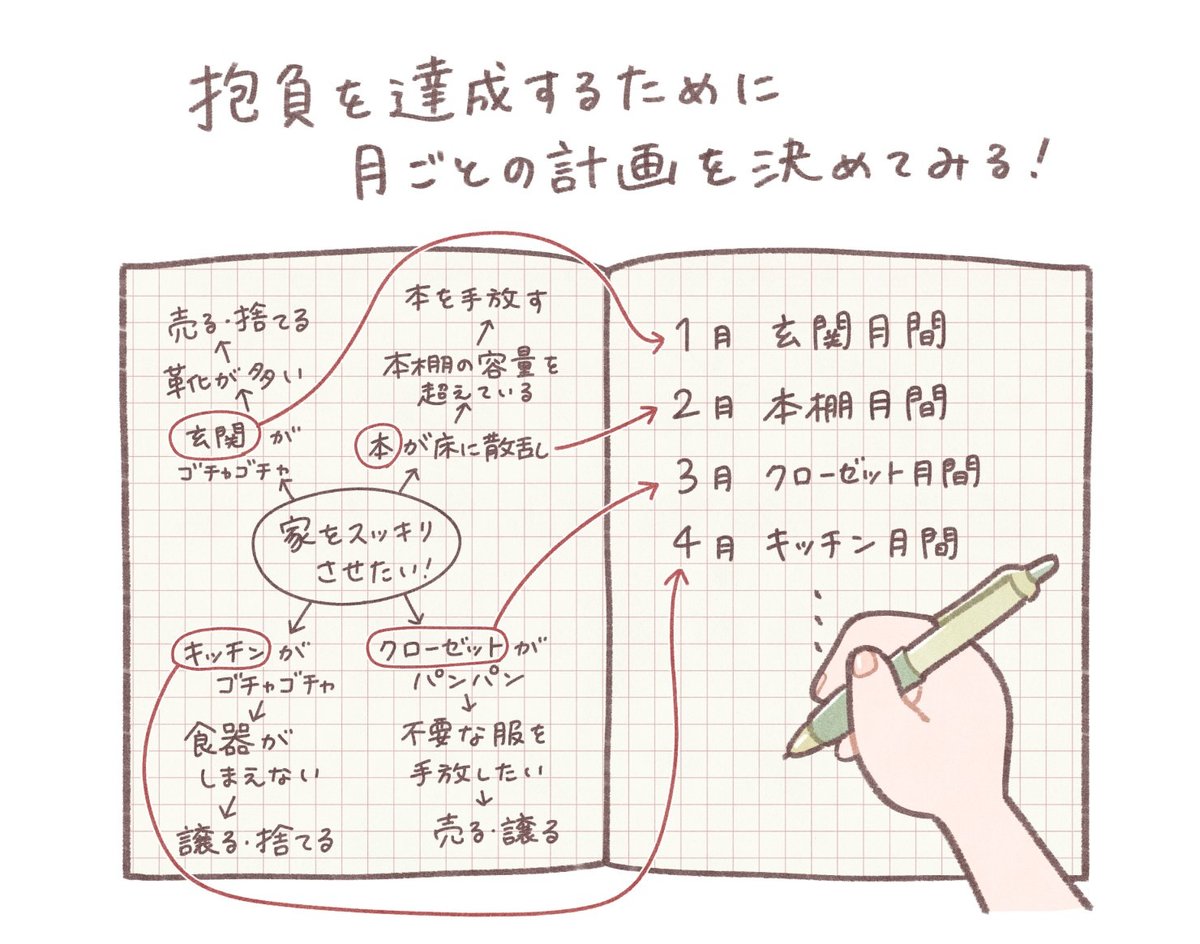 抱負を達成するために
月ごとの計画を決めてみる!
売る・捨てる
靴が多い
玄関が
ゴチャゴチャ
本を手放す
本棚の容量を
超えている
本が床に散乱し
家をスッキリ
させたい!
キッチンが
ゴチャゴチャ
食器が
しまえない
譲る・捨てる
クローゼットが
パンパン
不要な服を
手放したい
売る・譲る
1月 玄関月間
2月 本棚月間
3月 クローゼット月間
4月 キッチン月間